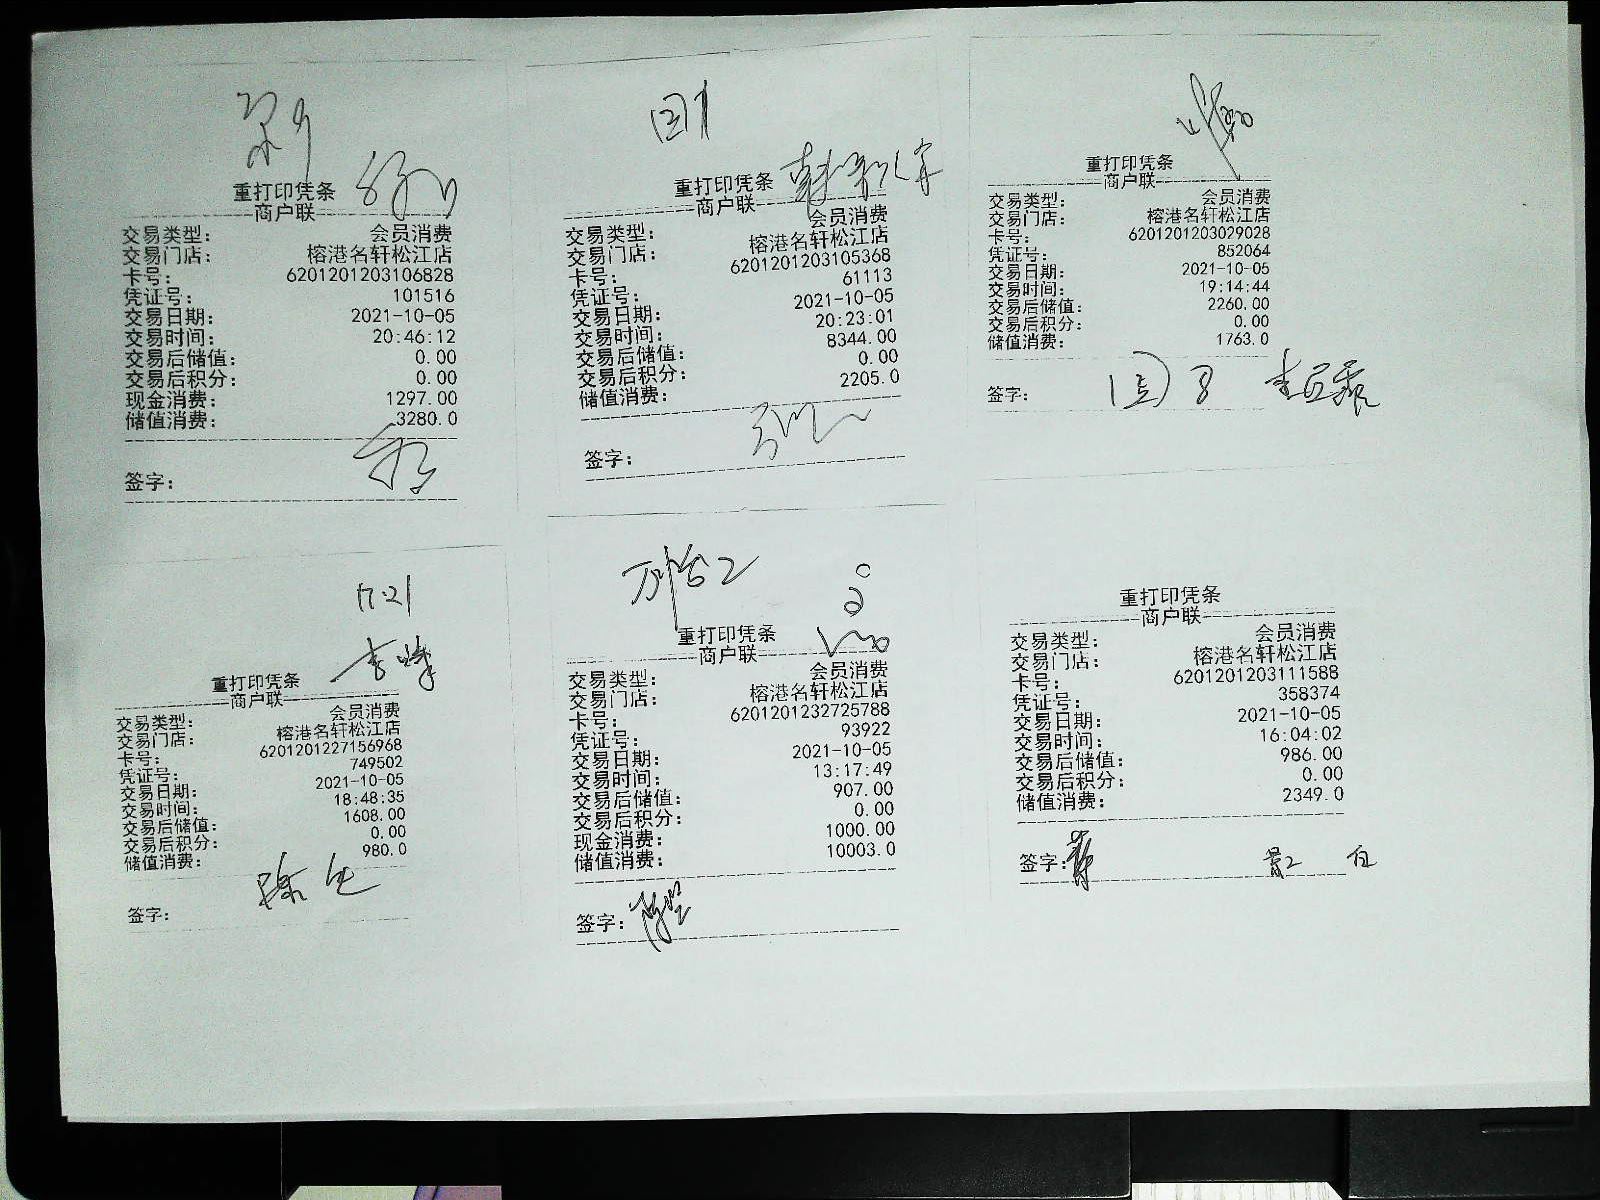 重打印凭条
商户联
交易类型: 会员消费
交易门店: 榕港名轩松江店
卡号: 6201201203106828
凭证号: 101516
交易日期: 2021-10-05
交易时间: 20:46:12
交易后储值: 0.00
交易后积分: 0.00
现金消费: 1297.00
储值消费: 3280.0
签字:
重打印凭条
商户联
交易类型: 会员消费
交易门店: 榕港名轩松江店
卡号: 6201201203105368
凭证号: 61113
交易日期: 2021-10-05
交易时间: 20:23:01
交易后储值: 8344.00
交易后积分: 0.00
储值消费: 2205.0
签字:
重打印凭条
商户联
交易类型: 会员消费
交易门店: 榕港名轩松江店
卡号: 6201201203029028
凭证号: 852064
交易日期: 2021-10-05
交易时间: 19:14:44
交易后储值: 2260.00
交易后积分: 0.00
储值消费: 1763.0
签字:
17:21
重打印凭条
商户联
交易类型: 会员消费
交易门店: 榕港名轩松江店
卡号: 6201201227156968
凭证号: 749502
交易日期: 2021-10-05
交易时间: 18:48:35
交易后储值: 1608.00
交易后积分: 0.00
储值消费: 980.0
签字:
重打印凭条
商户联
交易类型: 会员消费
交易门店: 榕港名轩松江店
卡号: 6201201232725788
凭证号: 93922
交易日期: 2021-10-05
交易时间: 13:17:49
交易后储值: 907.00
交易后积分: 0.00
现金消费: 1000.00
储值消费: 10003.0
签字:
重打印凭条
商户联
交易类型: 会员消费
交易门店: 榕港名轩松江店
卡号: 6201201203111588
凭证号: 358374
交易日期: 2021-10-05
交易时间: 16:04:02
交易后储值: 986.00
交易后积分: 0.00
储值消费: 2349.0
签字: